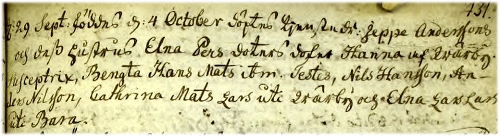 131.
d: 29 Sept: föddes d: 4 October döptes Huusmdr: Jeppe Anderssons
och dess hustrus Elna Pers dotters dotter Hanna uf Qvärby,
susceptrix, Bengta Hans Mats Am. Testes, Nils Hansson, An-
ders Nilsson, Cathrina Mats Lars uti Qvärby och Elna Lars Lars
uti Bara.